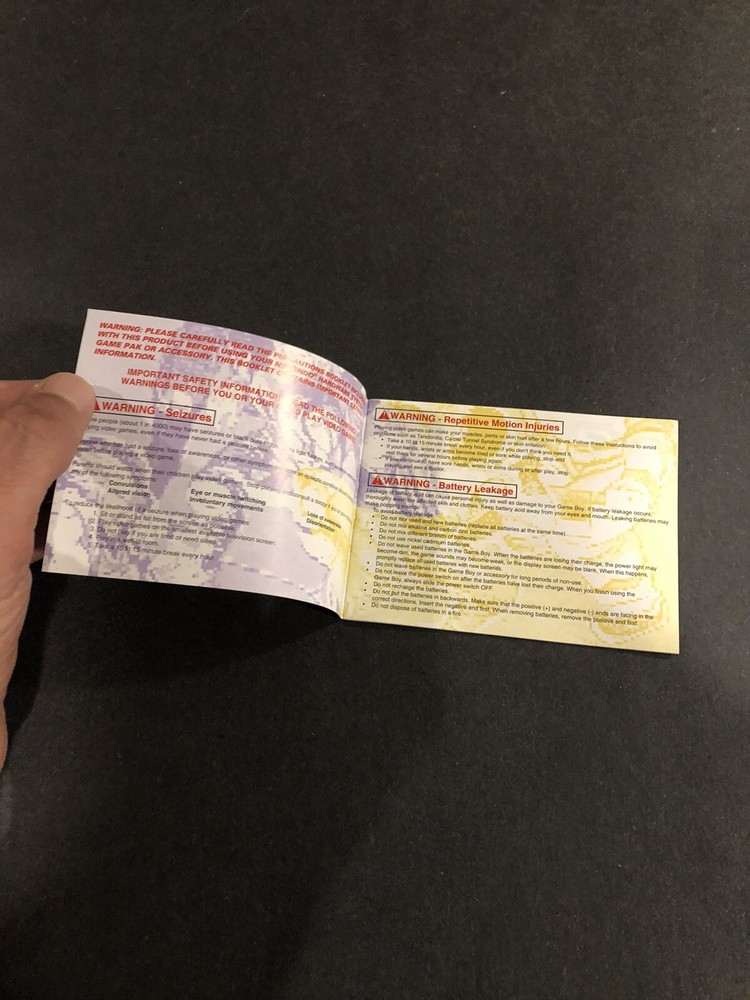 WARNING: PLEASE CAREFULLY READ THE PRECAUTIONS BOOKLET
WITH THIS PRODUCT BEFORE USING YOUR NINTENDO® HARDWARE
GAME PAK OR ACCESSORY. THIS BOOKLET CONTAINS IMPORTANT
INFORMATION.
IMPORTANT SAFETY INFORMATION READ THE FOLLOWING
WARNINGS BEFORE YOU OR YOUR PLAY VIDEO
WARNING - Seizures
people (about 1 in 4000) may have seizures or black outs
ying video games, even if they have never had a seizure
had a seizure, loss of awareness, or other symptom
before playing a video game.
Parents should watch when their children play video games. Stop
of the following symptoms:
Convulsions
Eye or muscle twitching
Loss of awareness
Altered vision
Involuntary movements
Disorientation
To reduce the likelihood of a seizure when playing video games:
1. Sit or stand as far from the screen as possible.
2. Play video games on the smallest available television screen.
3. Do not play if you are tired or need sleep.
4. Play in a well-lit room.
5. Take a 10 to 15 minute break every hour.
WARNING - Repetitive Motion Injuries
Playing video games can make your muscles, joints or skin hurt after a few hours. Follow these instructions to avoid
problems such as Tendinitis, Carpal Tunnel Syndrome or skin irritation:
• Take a 10 to 15 minute break every hour, even if you don't think you need it.
• If your hands, wrists or arms become tired or sore while playing, stop and
rest them for several hours before playing again.
• If you continue to have sore hands, wrists or arms during or after play, stop
playing and see a doctor.
WARNING - Battery Leakage
Leakage of battery acid can cause personal injury as well as damage to your Game Boy. If battery leakage occurs,
thoroughly wash the affected skin and clothes. Keep battery acid away from your eyes and mouth. Leaking batteries may
make popping sounds.
To avoid battery leakage:
• Do not mix used and new batteries (replace all batteries at the same time).
• Do not mix alkaline and carbon zinc batteries.
• Do not mix different brands of batteries.
• Do not use nickel cadmium batteries.
• Do not leave used batteries in the Game Boy. When the batteries are losing their charge, the power light may
become dim, the game sounds may become weak, or the display screen may be blank. When this happens,
promptly replace all used batteries with new batteries.
• Do not leave batteries in the Game Boy or accessory for long periods of non-use.
• Do not leave the power switch on after the batteries have lost their charge. When you finish using the
Game Boy, always slide the power switch OFF.
• Do not recharge the batteries.
• Do not put the batteries in backwards. Make sure that the positive (+) and negative (-) ends are facing in the
correct directions. Insert the negative end first. When removing batteries, remove the positive end first.
• Do not dispose of batteries in a fire.